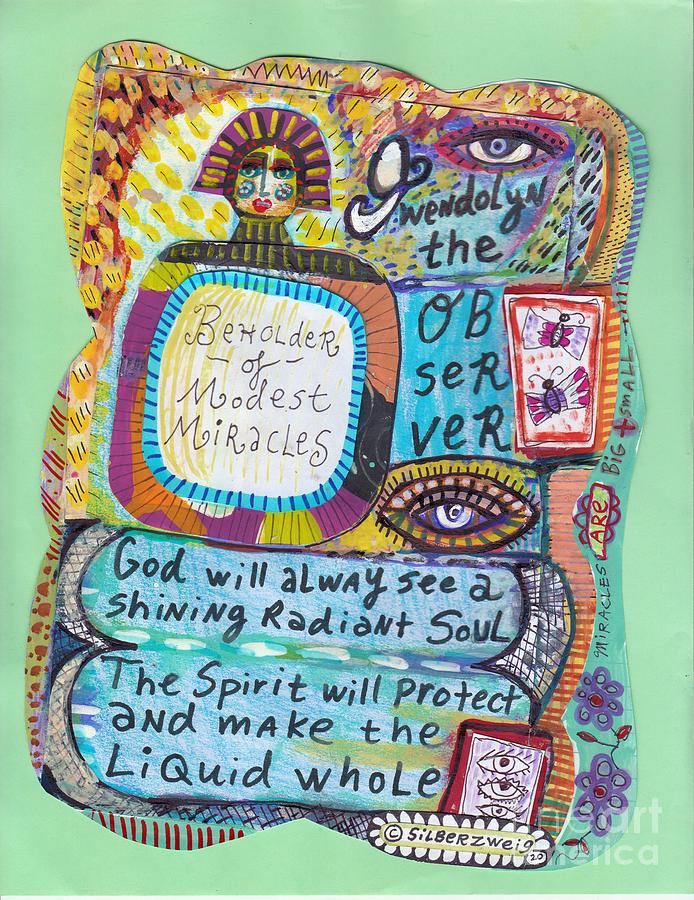 Gwendolyn
the
OB
seR
veR
Beholder
of
Modest
Miracles
God will alway see a
shining Radiant Soul
The Spirit will protect
and make the
Liquid whole
Miracles Are Big + small
© Silberzweig
20
fineart
america